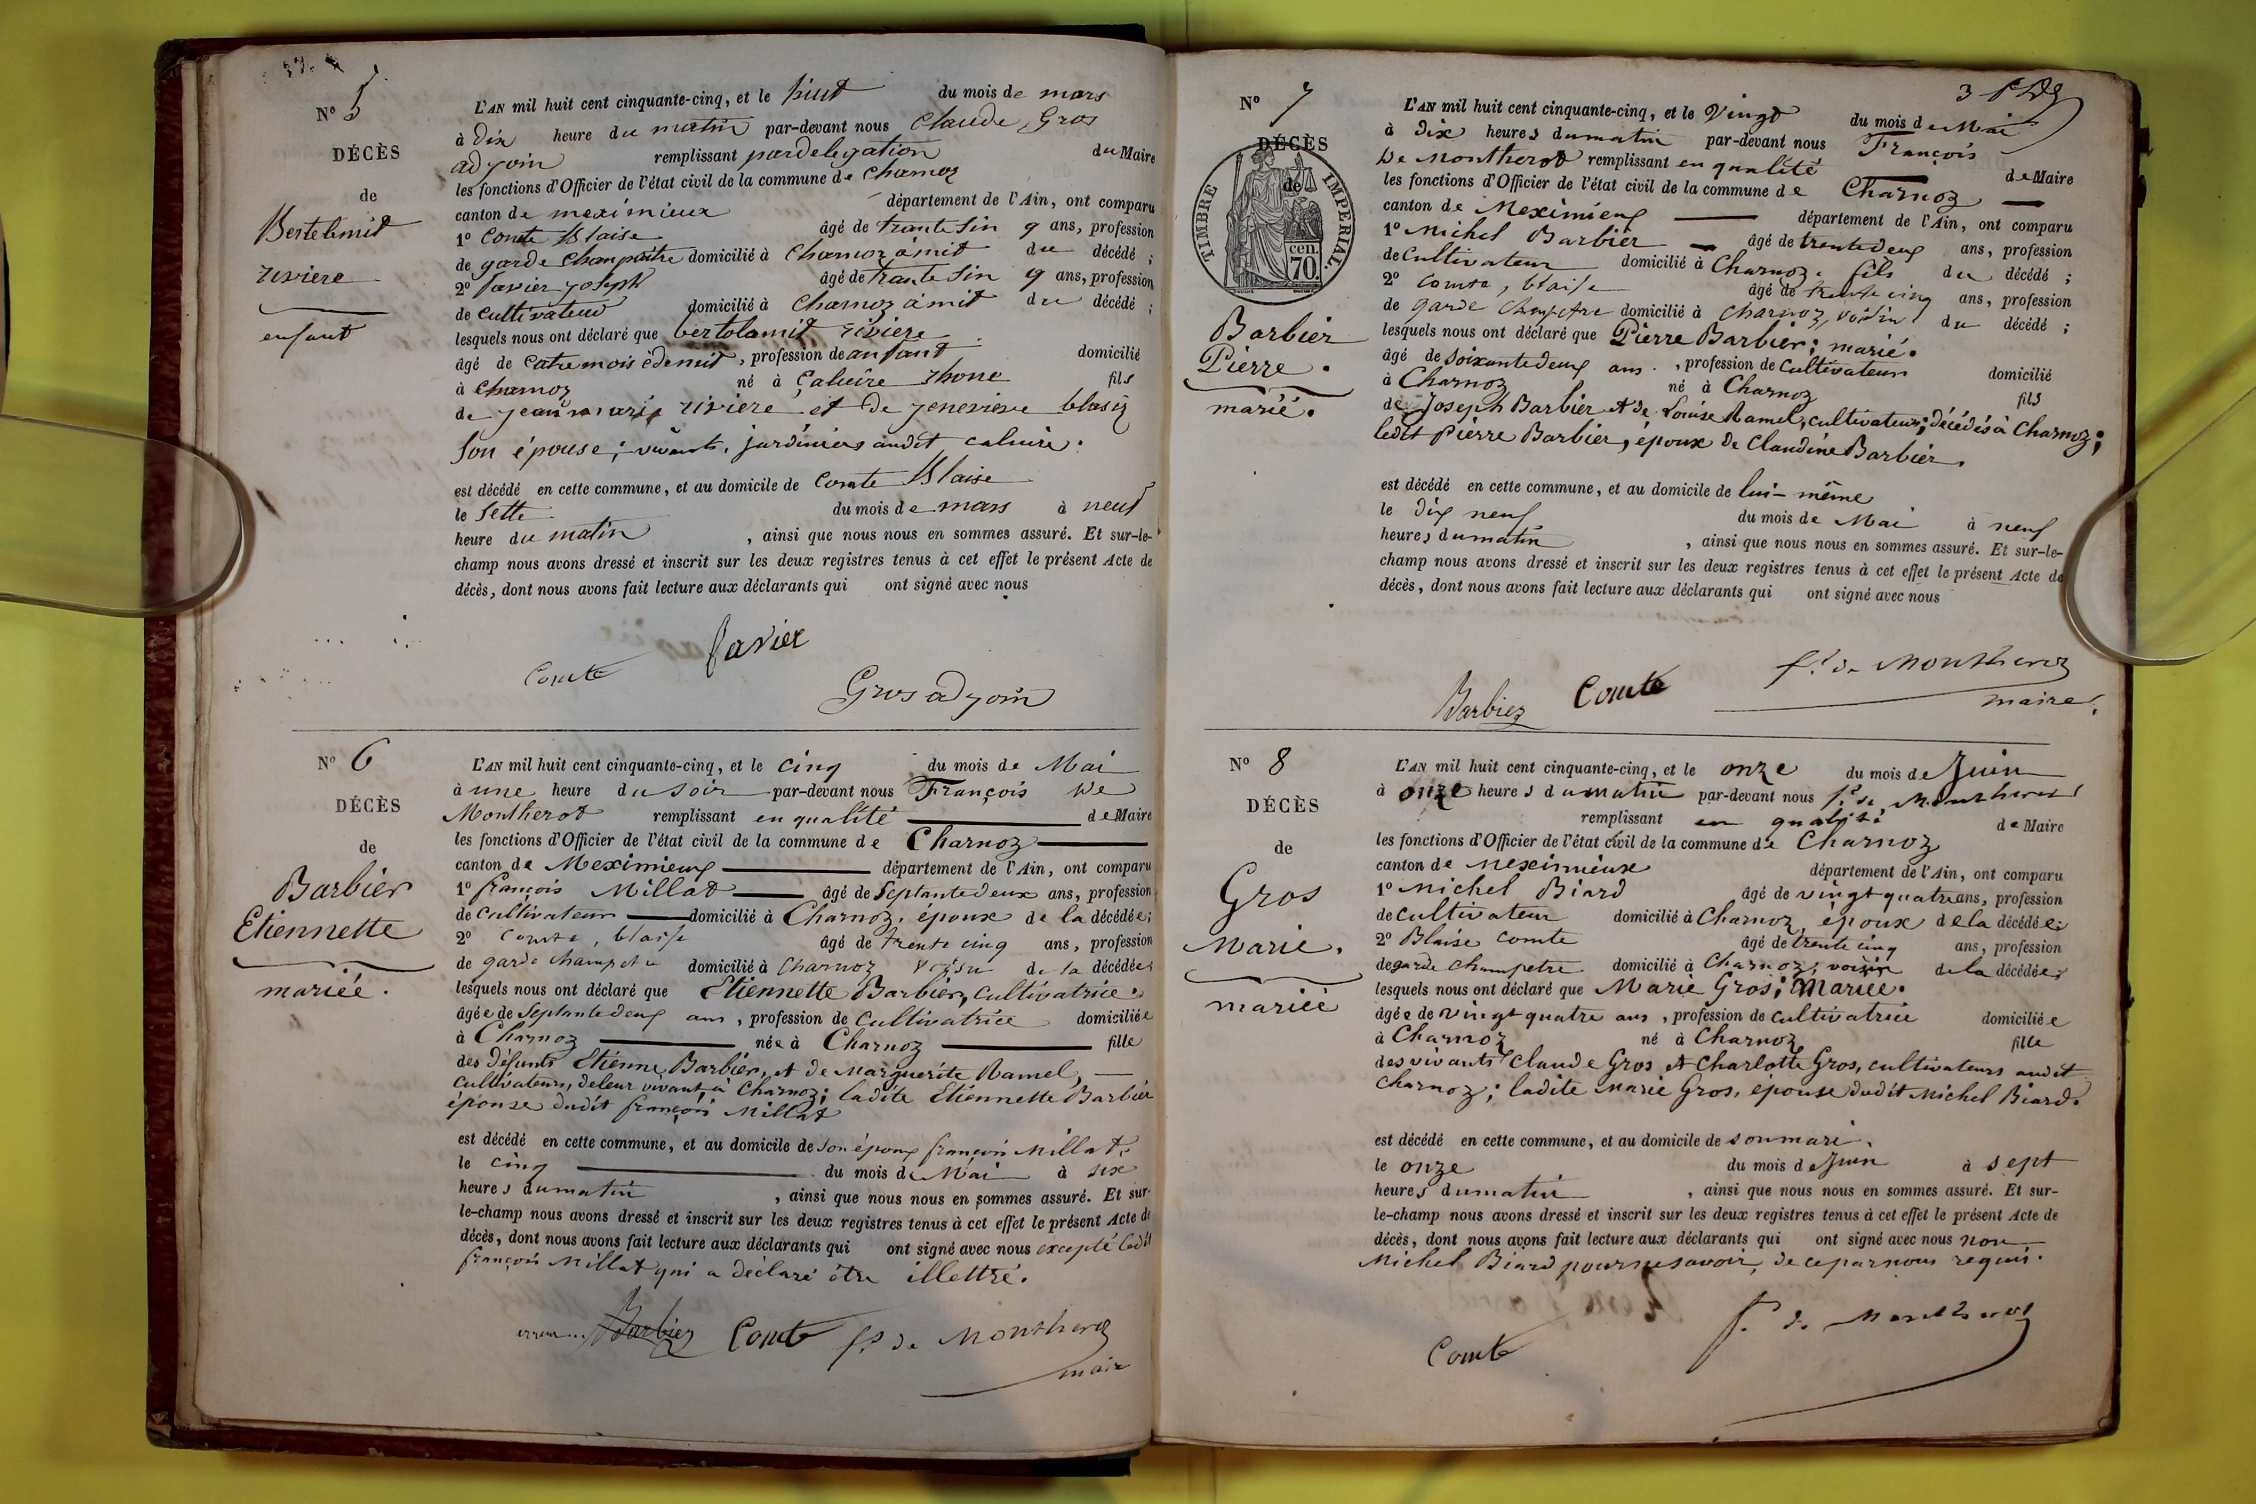 N° 5
DÉCÈS
de
Bertelemit
riviere
enfant
L'AN mil huit cent cinquante-cinq, et le huit du mois de mars
à Dix heure du matin par-devant nous Claude Gros
adjoin remplissant pardelegation du Maire
les fonctions d'Officier de l'état civil de la commune de charnoz
canton de meximieux département de l'Ain, ont comparu
1° Comte Blaise âgé de trante sin q ans, profession
de garde Champaitre domicilié à Charnoz amit du décédé ;
2° Savier joseph âgé de trante sin q ans, profession
de cultivateur domicilié à Charnoz amit du décédé ;
lesquels nous ont déclaré que bertolomit riviere
âgé de catre mois édemit, profession de anfant domicilié
à charnoz né à Caluire rhone fils
de jeanmarie riviere et de jenevieve blasiz
son épouse ; vivants, jardiniers audit caluire.
est décédé en cette commune, et au domicile de comte Blaise
le Sette du mois de mars à neuf
heure du matin, ainsi que nous nous en sommes assuré. Et sur-le-
champ nous avons dressé et inscrit sur les deux registres tenus à cet effet le présent Acte de
décès, dont nous avons fait lecture aux déclarants qui ont signé avec nous
Savier
Comte
Gros adjoin
N° 6
DÉCÈS
de
Barbier
Etiennette
mariée.
L'AN mil huit cent cinquante-cinq, et le cinq du mois de Mai
à une heure du soir par-devant nous François De
Montherot remplissant en qualité de Maire
les fonctions d'Officier de l'état civil de la commune de Charnoz
canton de Meximieux département de l'Ain, ont comparu
1° françois Millat âgé de Septante deux ans, profession
de Cultivateur domicilié à Charnoz, époux de la décédée ;
2° comte, blaise âgé de trente cinq ans, profession
de garde champetre domicilié à charnoz voisin de la décédée ;
lesquels nous ont déclaré que Etiennette Barbier, cultivatrice.
âgée de Septante deux ans, profession de Cultivatrice domiciliée
à Charnoz née à Charnoz fille
des défunts Etienne Barbier, et de Marguerite Ramel,
cultivateurs, de leur vivant, à Charnoz ; ladite Etiennette Barbier
épouse dudit françois Millat
est décédé en cette commune, et au domicile de son époux françois Millat,
le cinq du mois de Mai à six
heures du matin, ainsi que nous nous en sommes assuré. Et sur-
le-champ nous avons dressé et inscrit sur les deux registres tenus à cet effet le présent Acte de
décès, dont nous avons fait lecture aux déclarants qui ont signé avec nous excepté ledit
françois Millat qui a déclaré être illettré.
erreur... Barbier Comte f.s de Montherot
maire
3
N° 7
DÉCÈS
de
TIMBRE IMPERIAL.
70. cen
Barbier
Pierre.
marié.
L'AN mil huit cent cinquante-cinq, et le Vingt du mois de Mai
à dix heures du matin par-devant nous François
De Montherot remplissant en qualité de Maire
les fonctions d'Officier de l'état civil de la commune de Charnoz
canton de Meximieux département de l'Ain, ont comparu
1° Michel Barbier âgé de trente deux ans, profession
de Cultivateur domicilié à Charnoz, fils du décédé ;
2° comte, blaise âgé de trente cinq ans, profession
de garde champetre domicilié à charnoz, voisin du décédé ;
lesquels nous ont déclaré que Pierre Barbier ; marié.
âgé de soixante deux ans, profession de Cultivateur domicilié
à Charnoz né à Charnoz fils
de Joseph Barbier et de Louise Ramel, cultivateurs ; décédés à Charnoz ;
ledit Pierre Barbier, époux de Claudine Barbier.
est décédé en cette commune, et au domicile de lui-même
le dix neuf du mois de Mai à neuf
heures du matin, ainsi que nous nous en sommes assuré. Et sur-le-
champ nous avons dressé et inscrit sur les deux registres tenus à cet effet le présent Acte de
décès, dont nous avons fait lecture aux déclarants qui ont signé avec nous
Barbier Comte f.s de Montherot
maire.
N° 8
DÉCÈS
de
Gros
Marie.
mariée
L'AN mil huit cent cinquante-cinq, et le onze du mois de Juin
à onze heures du matin par-devant nous f.s de Montherot
remplissant en qualité de Maire
les fonctions d'Officier de l'état civil de la commune de Charnoz
canton de Meximieux département de l'Ain, ont comparu
1° Michel Biard âgé de vingt quatre ans, profession
de cultivateur domicilié à Charnoz, époux de la décédée ;
2° Blaise comte âgé de trente cinq ans, profession
de garde champetre domicilié à Charnoz, voisin de la décédée ;
lesquels nous ont déclaré que Marie Gros ; Mariée.
âgée de vingt quatre ans, profession de cultivatrice domiciliée
à Charnoz né à Charnoz fille
des vivants Claude Gros et Charlotte Gros, cultivateurs audit
Charnoz ; ladite Marie Gros, épouse dudit Michel Biard.
est décédé en cette commune, et au domicile de son mari.
le onze du mois de Juin à sept
heures du matin, ainsi que nous nous en sommes assuré. Et sur-
le-champ nous avons dressé et inscrit sur les deux registres tenus à cet effet le présent Acte de
décès, dont nous avons fait lecture aux déclarants qui ont signé avec nous non
Michel Biard pour ne savoir, de ce par nous requis.
Comte f. de Montherot